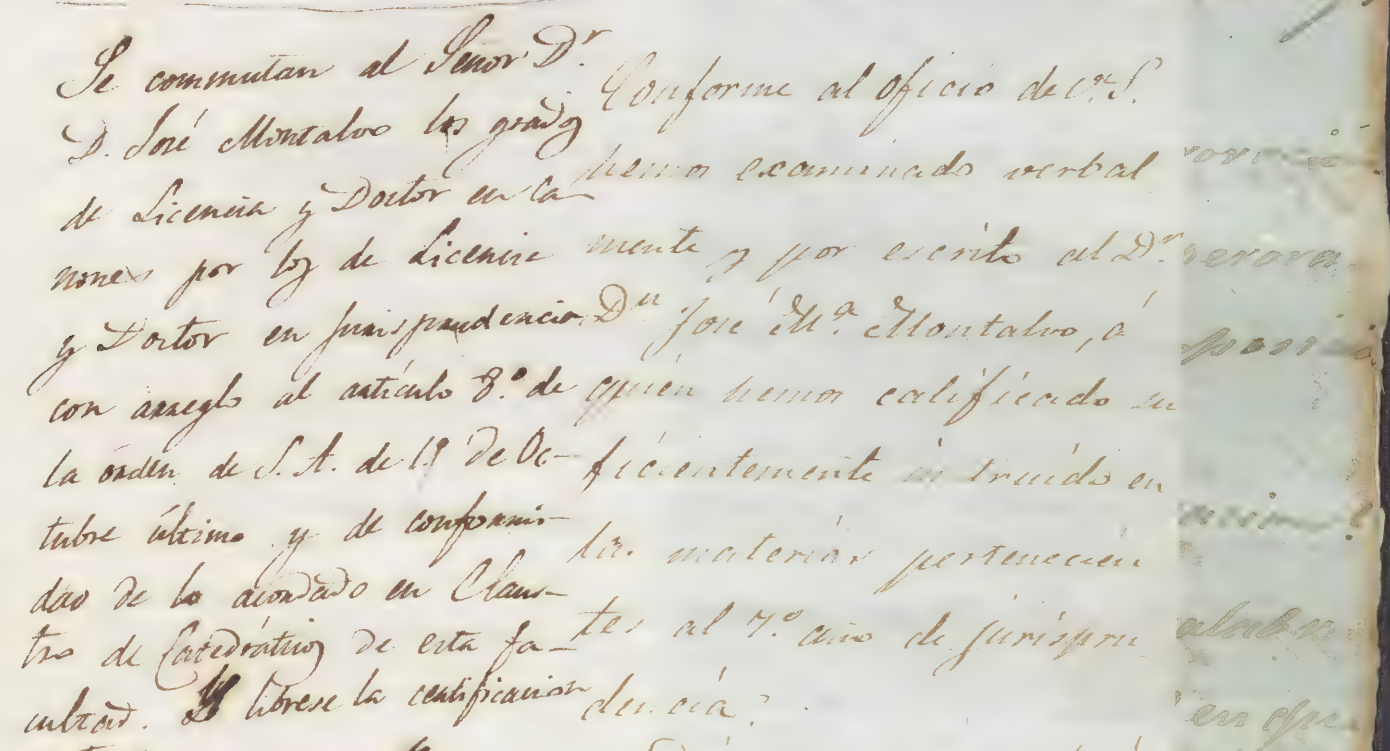 Se commutan al Señor Dr.
D. José Montalvo los grados
de Licencia y Doctor en Ca-
nones por los de Licencia
y Doctor en Jurisprudencia
con arreglo al artículo 8.º de
la orden de S. A. de 19 de Oc-
tubre último y de conformi-
dad de lo acordado en Claus-
tro de Catedráticos de esta fa-
cultad. Librese la certificacion
Conforme al oficio de V. S.
hemos examinado verbal
mente y por escrito al Dr.
Dn José Mª Montalvo, á
quien hemos calificado su
ficientemente instruido en
las materias pertenecien
tes al 7.º año de jurispru
dencia.